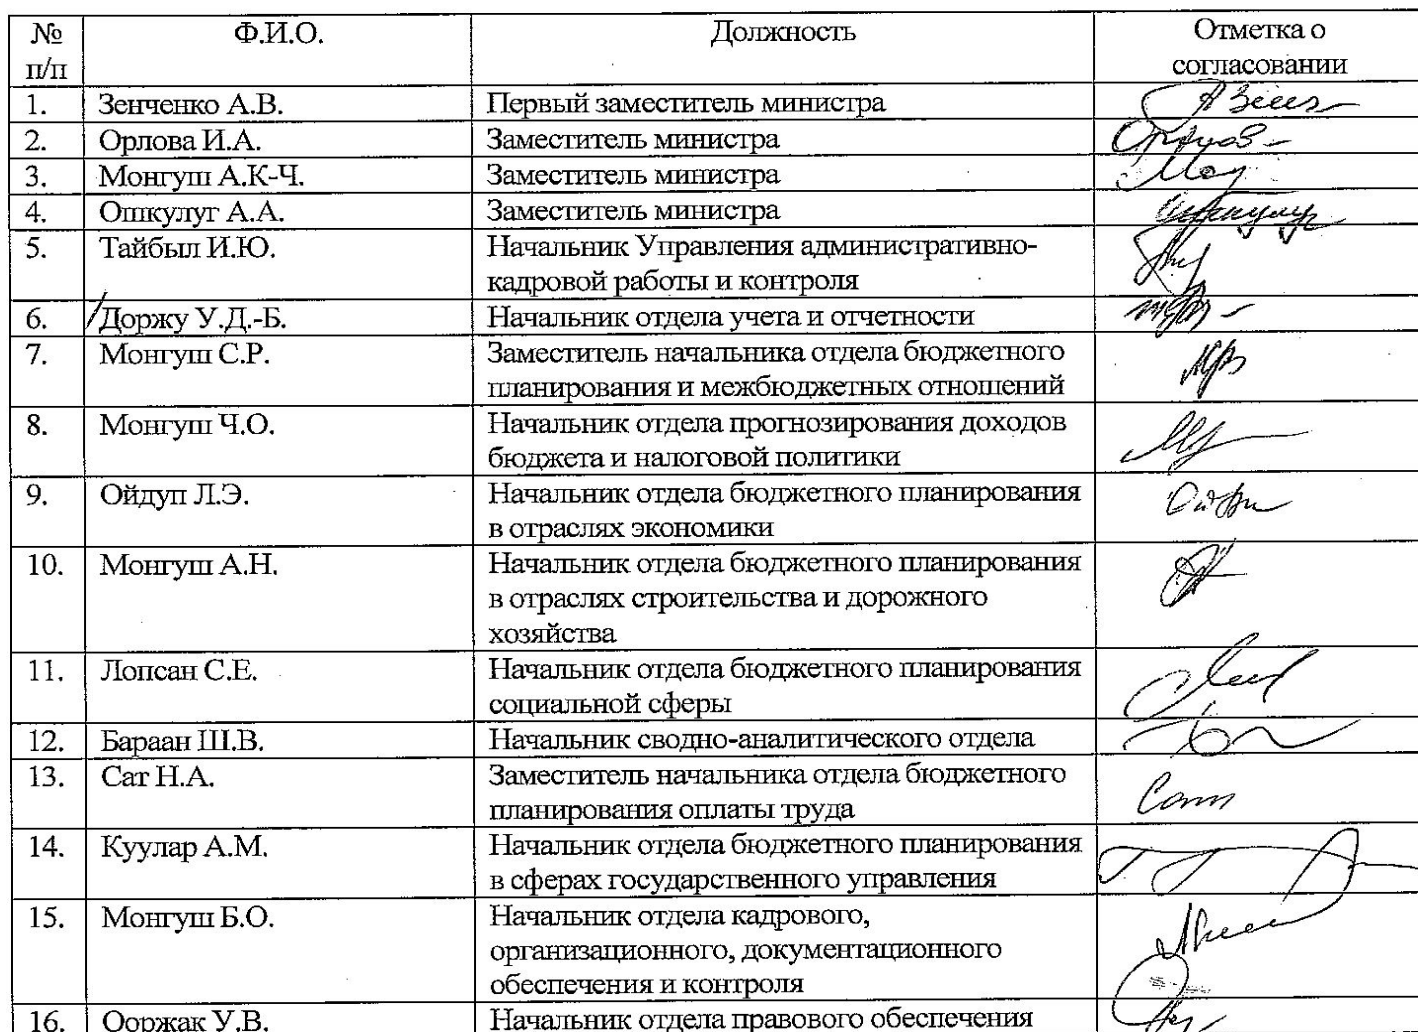 № Ф.И.О. Должность Отметка о
п/п согласовании
1. Зенченко А.В. Первый заместитель министра
2. Орлова И.А. Заместитель министра
3. Монгуш А.К-Ч. Заместитель министра
4. Ошкулуг А.А. Заместитель министра
5. Тайбыл И.Ю. Начальник Управления административно-
кадровой работы и контроля
6. Доржу У.Д.-Б. Начальник отдела учета и отчетности
7. Монгуш С.Р. Заместитель начальника отдела бюджетного
планирования и межбюджетных отношений
8. Монгуш Ч.О. Начальник отдела прогнозирования доходов
бюджета и налоговой политики
9. Ойдуп Л.Э. Начальник отдела бюджетного планирования
в отраслях экономики
10. Монгуш А.Н. Начальник отдела бюджетного планирования
в отраслях строительства и дорожного
хозяйства
11. Лопсан С.Е. Начальник отдела бюджетного планирования
социальной сферы
12. Бараан Ш.В. Начальник сводно-аналитического отдела
13. Сат Н.А. Заместитель начальника отдела бюджетного
планирования оплаты труда
14. Куулар А.М. Начальник отдела бюджетного планирования
в сферах государственного управления
15. Монгуш Б.О. Начальник отдела кадрового,
организационного, документационного
обеспечения и контроля
16. Ооржак У.В. Начальник отдела правового обеспечения